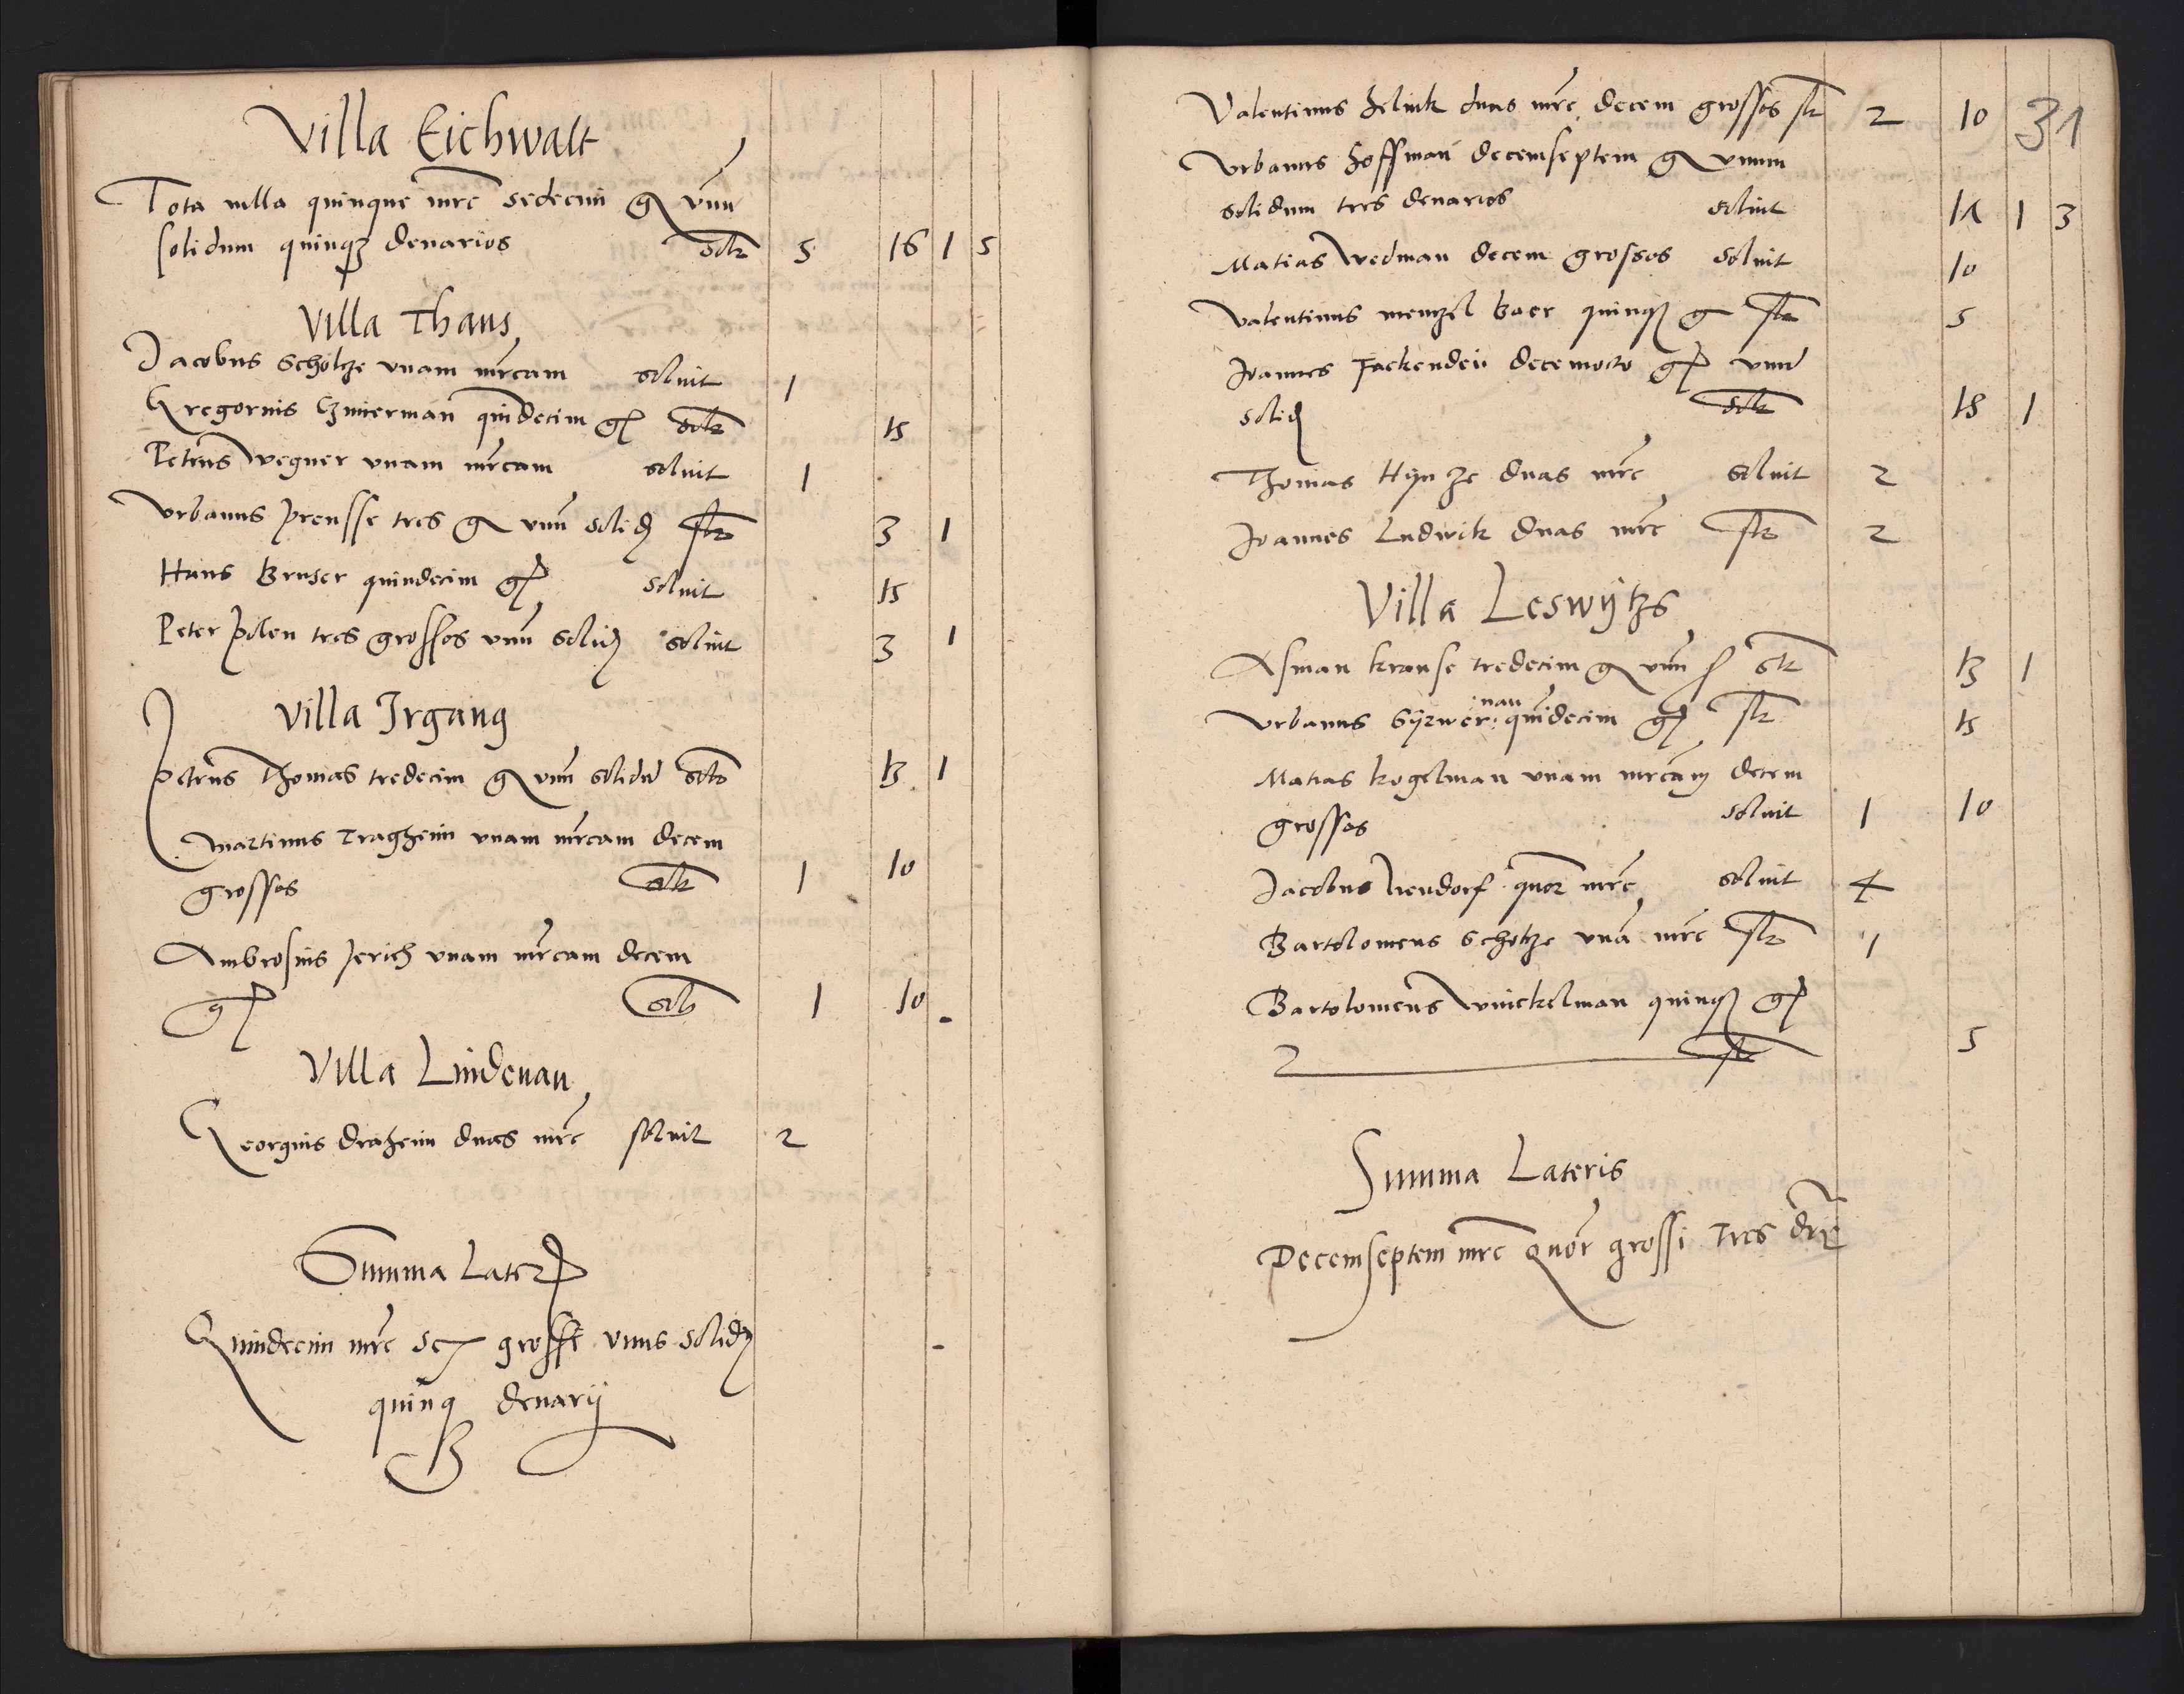 Villa Eichwalt
Tota villa quinque mrc sedecim g vnu
solidum quinqz denarios solt 5 16 1 5
Villa Thaus
Jacobus Scholtze vnam mrcam soluit 1
Gregorius Czimerman quindecim g solt 15
Petrus Wegner vnam mrcam soluit 1
Vrbanus preusse tres g vnu solid solt 3 1
Hans Bruser quindecim g soluit 15
Peter Polen tres grossos vnu solid soluit 3 1
Villa Irgang
Petrus Thomas tredecim g vnu solidu solt 13 1
Martinus Tragheim vnam mrcam decem
grossos solt 1 10
Ambrosius Jerich vnam mrcam decem
g solt 1 10
Villa Lindenau
Georgius Draheim duas mrc soluit 2
Summa Later
Quindecim mrc sex grossi vnus solid
quinq denarij
31
Valentinus Helink duas mrc decem grossos slt 2 10
Vrbanus Hoffman decemseptem g vnum
solidum tres denarios soluit 17 1 3
Matias Wedman decem grossos soluit 10
Valentinus mentzel Baer quinq g slt 5
Joannes Fackendei decemocto g vnu
solid solt 18 1
Thomas Hyntze duas mrc soluit 2
Joannes Ludwik duas mrc slt 2
Villa Leswytzs
Asman krause tredecim g vnu s slt 13 1
nan
Vrbanus Syrwer quindecim g slt 15
Matias kogelman vnam mrcam decem
grossos soluit 1 10
Jacobus Neudorf quor mrc soluit 4
Bartolomeus Scholtze vna mrc slt 1
Bartolomeus Winckelman quinq g
slt 5
Summa Lateris
Decemseptem mrc Quor grossi Tres dr